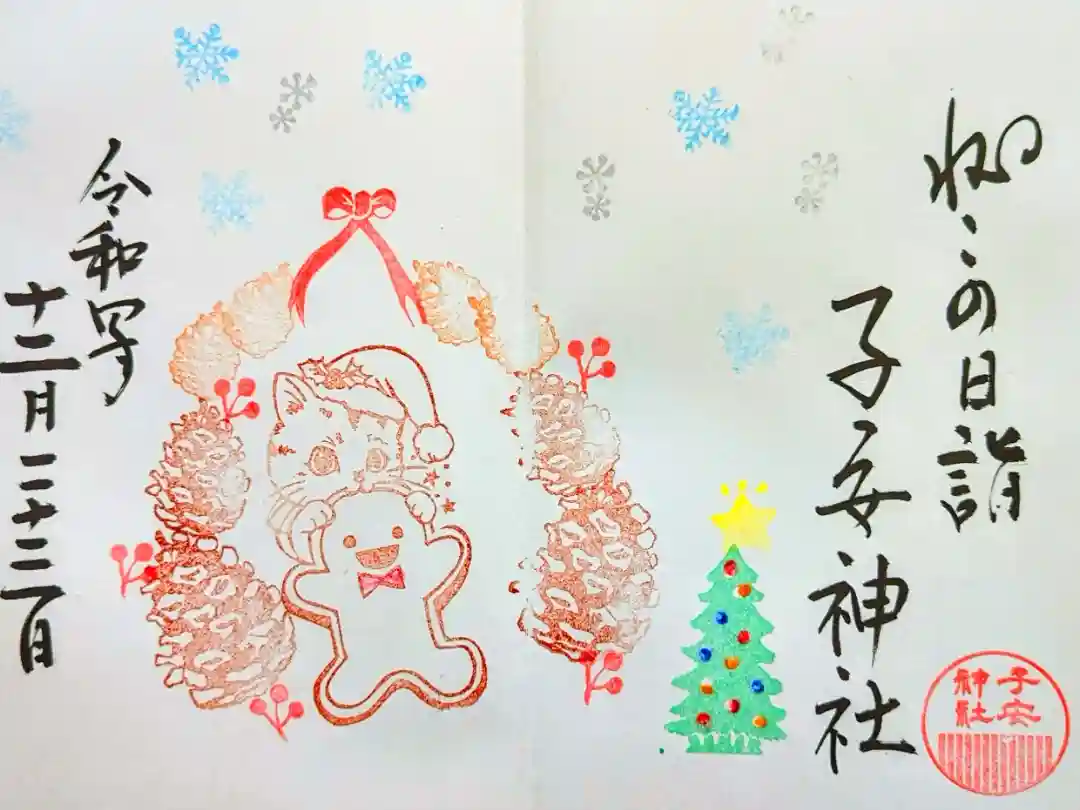 ねこの日詣
子安神社
子安
神社
令和四年
十二月二十二日